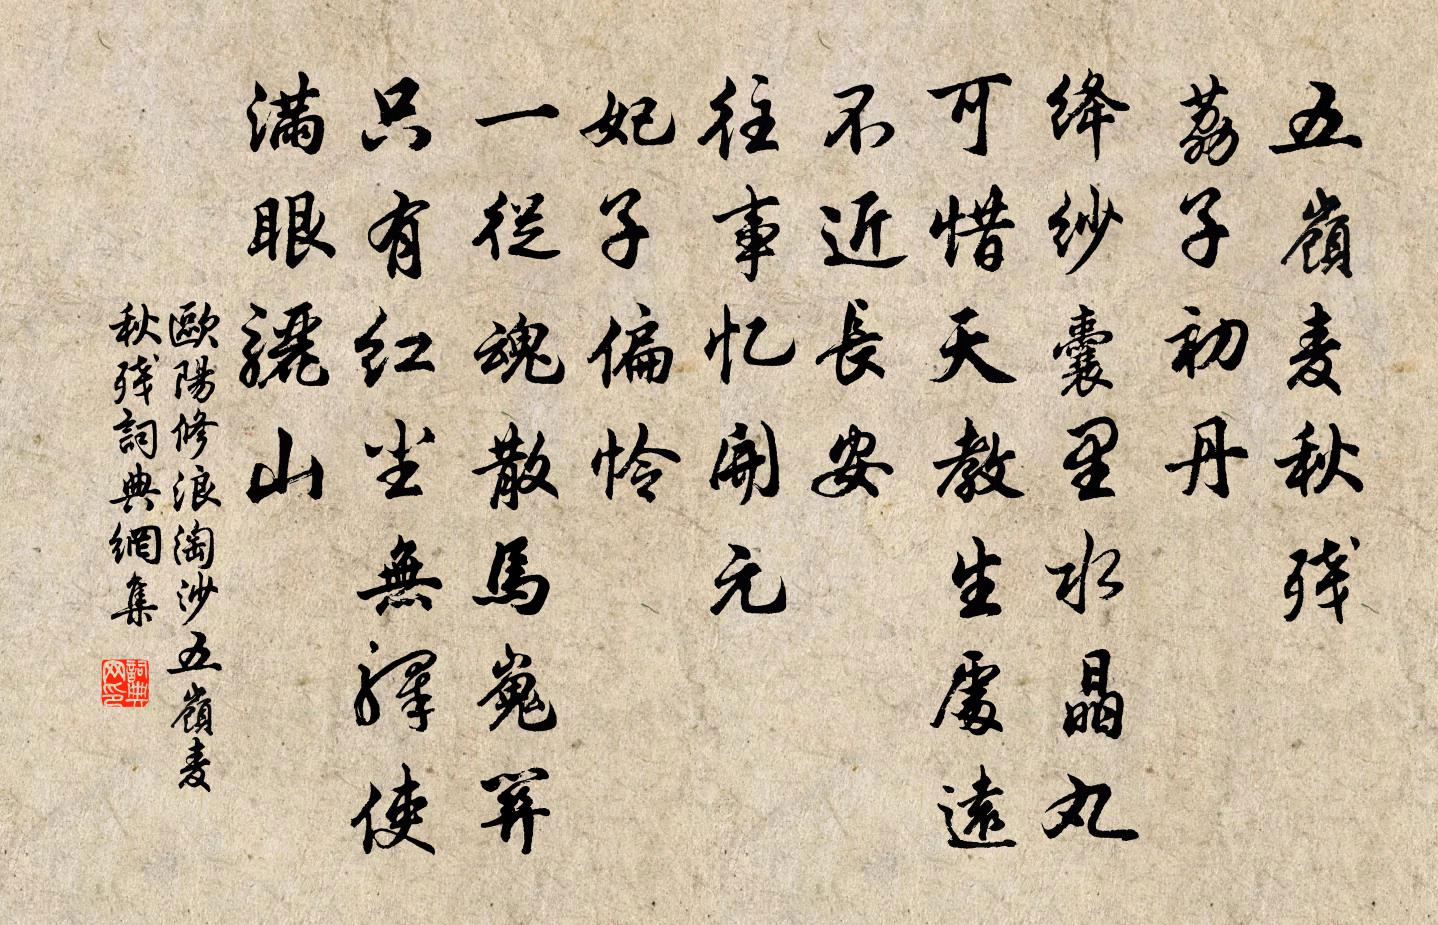 五嶺麦秋残
荔子初丹
绛纱囊里水晶丸
可惜天教生處遠
不近長安
往事忆開元
妃子偏怜
一從魂散馬嵬関
只有红尘無驛使
满眼驪山
歐陽修浪淘沙五嶺麦
秋残詞典網集
詞典网印